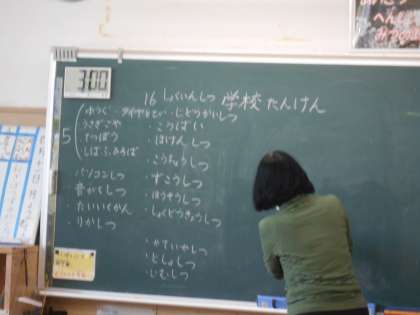 3:00
16 しょくいんしつ 学校たんけん
5
うさぎごや
てつぼう
しばふひろば
・パソコンしつ
音がくしつ
・たいいくかん
・りかしつ
・じどうかいしつ
・こうばい
・ほけんしつ
・こうちょうしつ
・ずこうしつ
・ほうそうしつ
・しょくどうきょうしつ
・かていかしつ
・としょしつ
・じむしつ